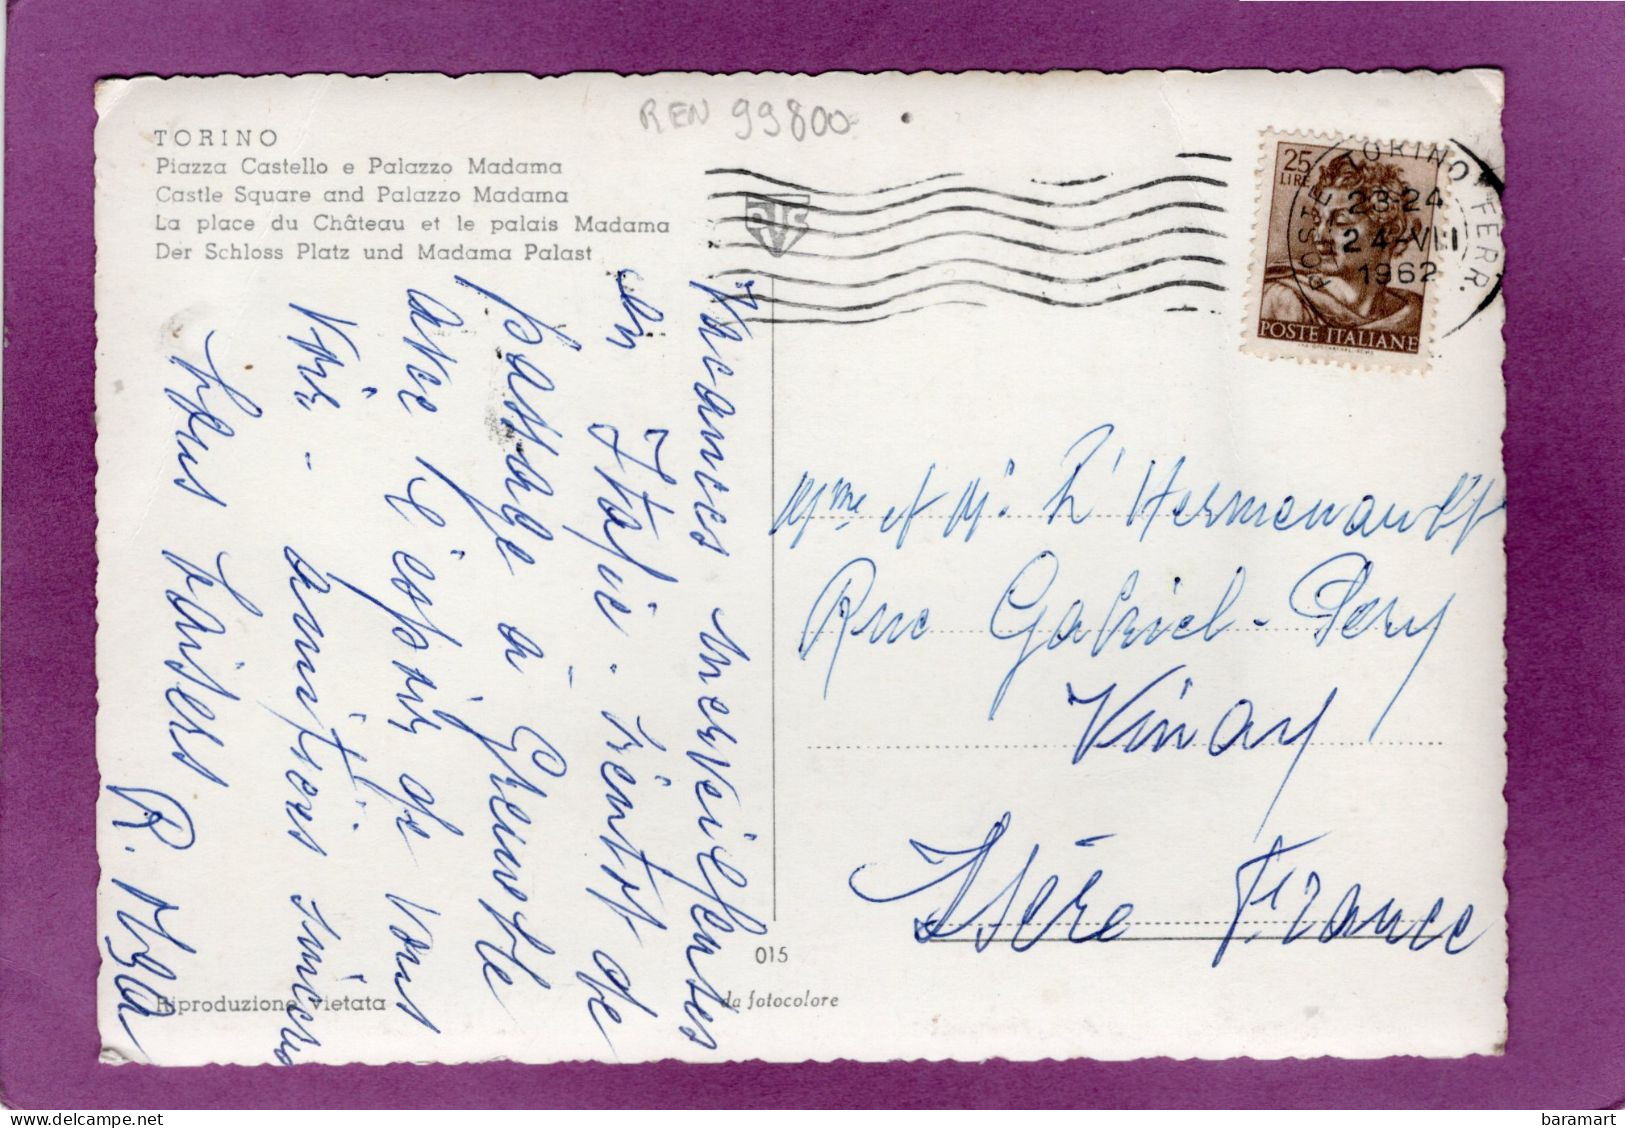 REN 99800
TORINO
Piazza Castello e Palazzo Madama
Castle Square and Palazzo Madama
La place du Château et le palais Madama
Der Schloss Platz und Madama Palast
25
LIRE
POSTE ITALIANE
TORINO FERR.
POSTE
23-24
24-VIII
1962
Vacances merveilleuses
en Italie. Bientôt de
passage à Grenoble
avec l'espoir de vous
voir. amitiés sincères
bons baisers
R.
Mme et Mr L'Hermenault
Rue Gabriel-Pery
Vinay
Isère France
015
Riproduzione vietata
da fotocolore
baramart